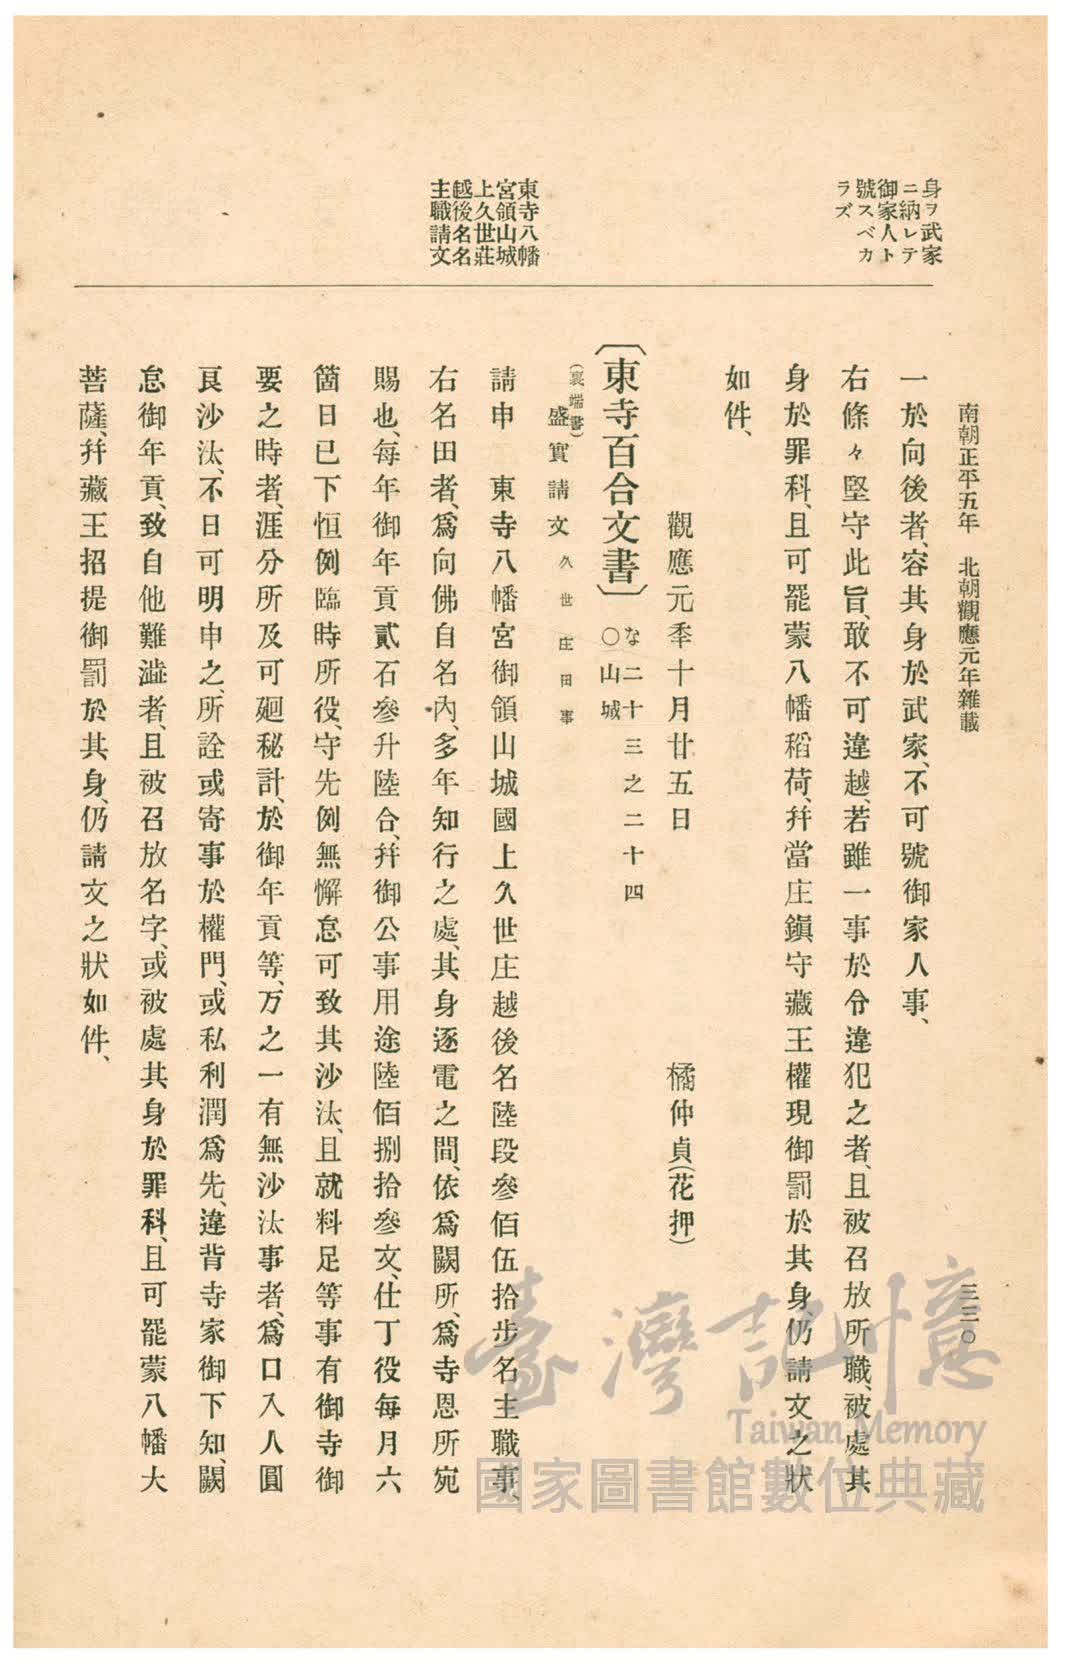 南朝正平五年　北朝觀應元年雜載
三三〇
身ヲ武家
ニ納レテ
御家人ト
號スベカ
ラズ
一於向後者、容其身於武家、不可號御家人事、
右條々堅守此旨、敢不可違越、若雖一事於令違犯之者、且被召放所職、被處其
身於罪科、且可罷蒙八幡稻荷、幷當庄鎭守藏王權現御罰於其身、仍請文之狀
如件、
觀應元年十月廿五日　橘仲貞(花押)
〔東寺百合文書〕な二十三之二十四
〇山城
(裏端書)
盛實請文久世庄田事
東寺八幡
宮領山城
上久世莊
越後名名
主職請文
請申　東寺八幡宮御領山城國上久世庄越後名陸段參佰伍拾步名主職事、
右名田者、爲向佛自名內、多年知行之處、其身逐電之間、依爲闕所、爲寺恩所宛
賜也、每年御年貢貳石參升陸合、幷御公事用途陸佰捌拾參文、仕丁役每月六
箇日已下恒例臨時所役、守先例、無懈怠可致其沙汰、且就料足等事有御寺御
要之時者、涯分所及可廻秘計、於御年貢等、万之一有無沙汰事者、爲口入人圓
良沙汰、不日可明申之、所詮或寄事於權門、或私利潤爲先、違背寺家御下知、闕
怠御年貢、致自他難澁者、且被召放名字、或被處其身於罪科、且可罷蒙八幡大
菩薩、幷藏王招提御罰於其身、仍請文之狀如件、
臺灣記憶
Taiwan Memory
國家圖書館數位典藏